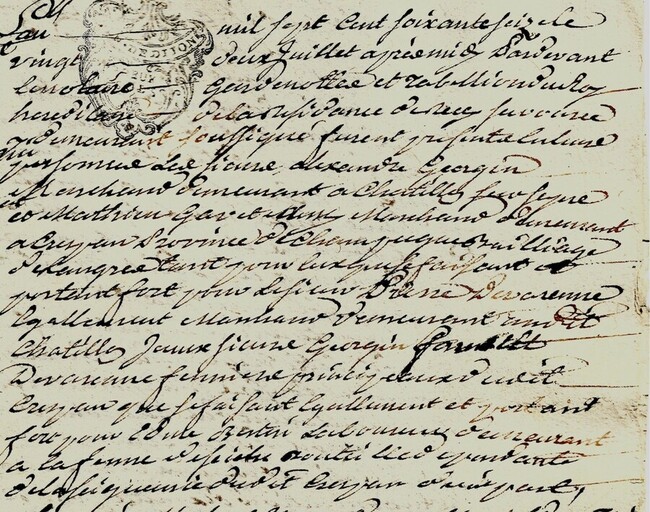 L'an mil sept Cent soixante seize le
vingt deux Juillet apres midi Pardevant
le notaire Gardenottee et Tabellion du Roy
hereditaire de la Residance de Recey sur ource
y demeurant soussigné furent presents en leurs
personnes Les sieurs alexandre Georgin
Marchand demeurant a Chatillon sur seyne
et Mathieu Marchand demeurant
a Crepan Province de Champagne Bailliage
de Langres tant pour lux que faisant et
portant fort pour Le sieur Pierre Devarenne
Egallement Marchand demeurant audit
Chatillon Jceux sieurs Georgin
Devarenne fermiers principeaux dudit
Crepan que se faisant Egallement et portant
fort pour Edme Laboureur demeurant
a la ferme de dependante
de la seigneurie dudit Crepan d'une part,